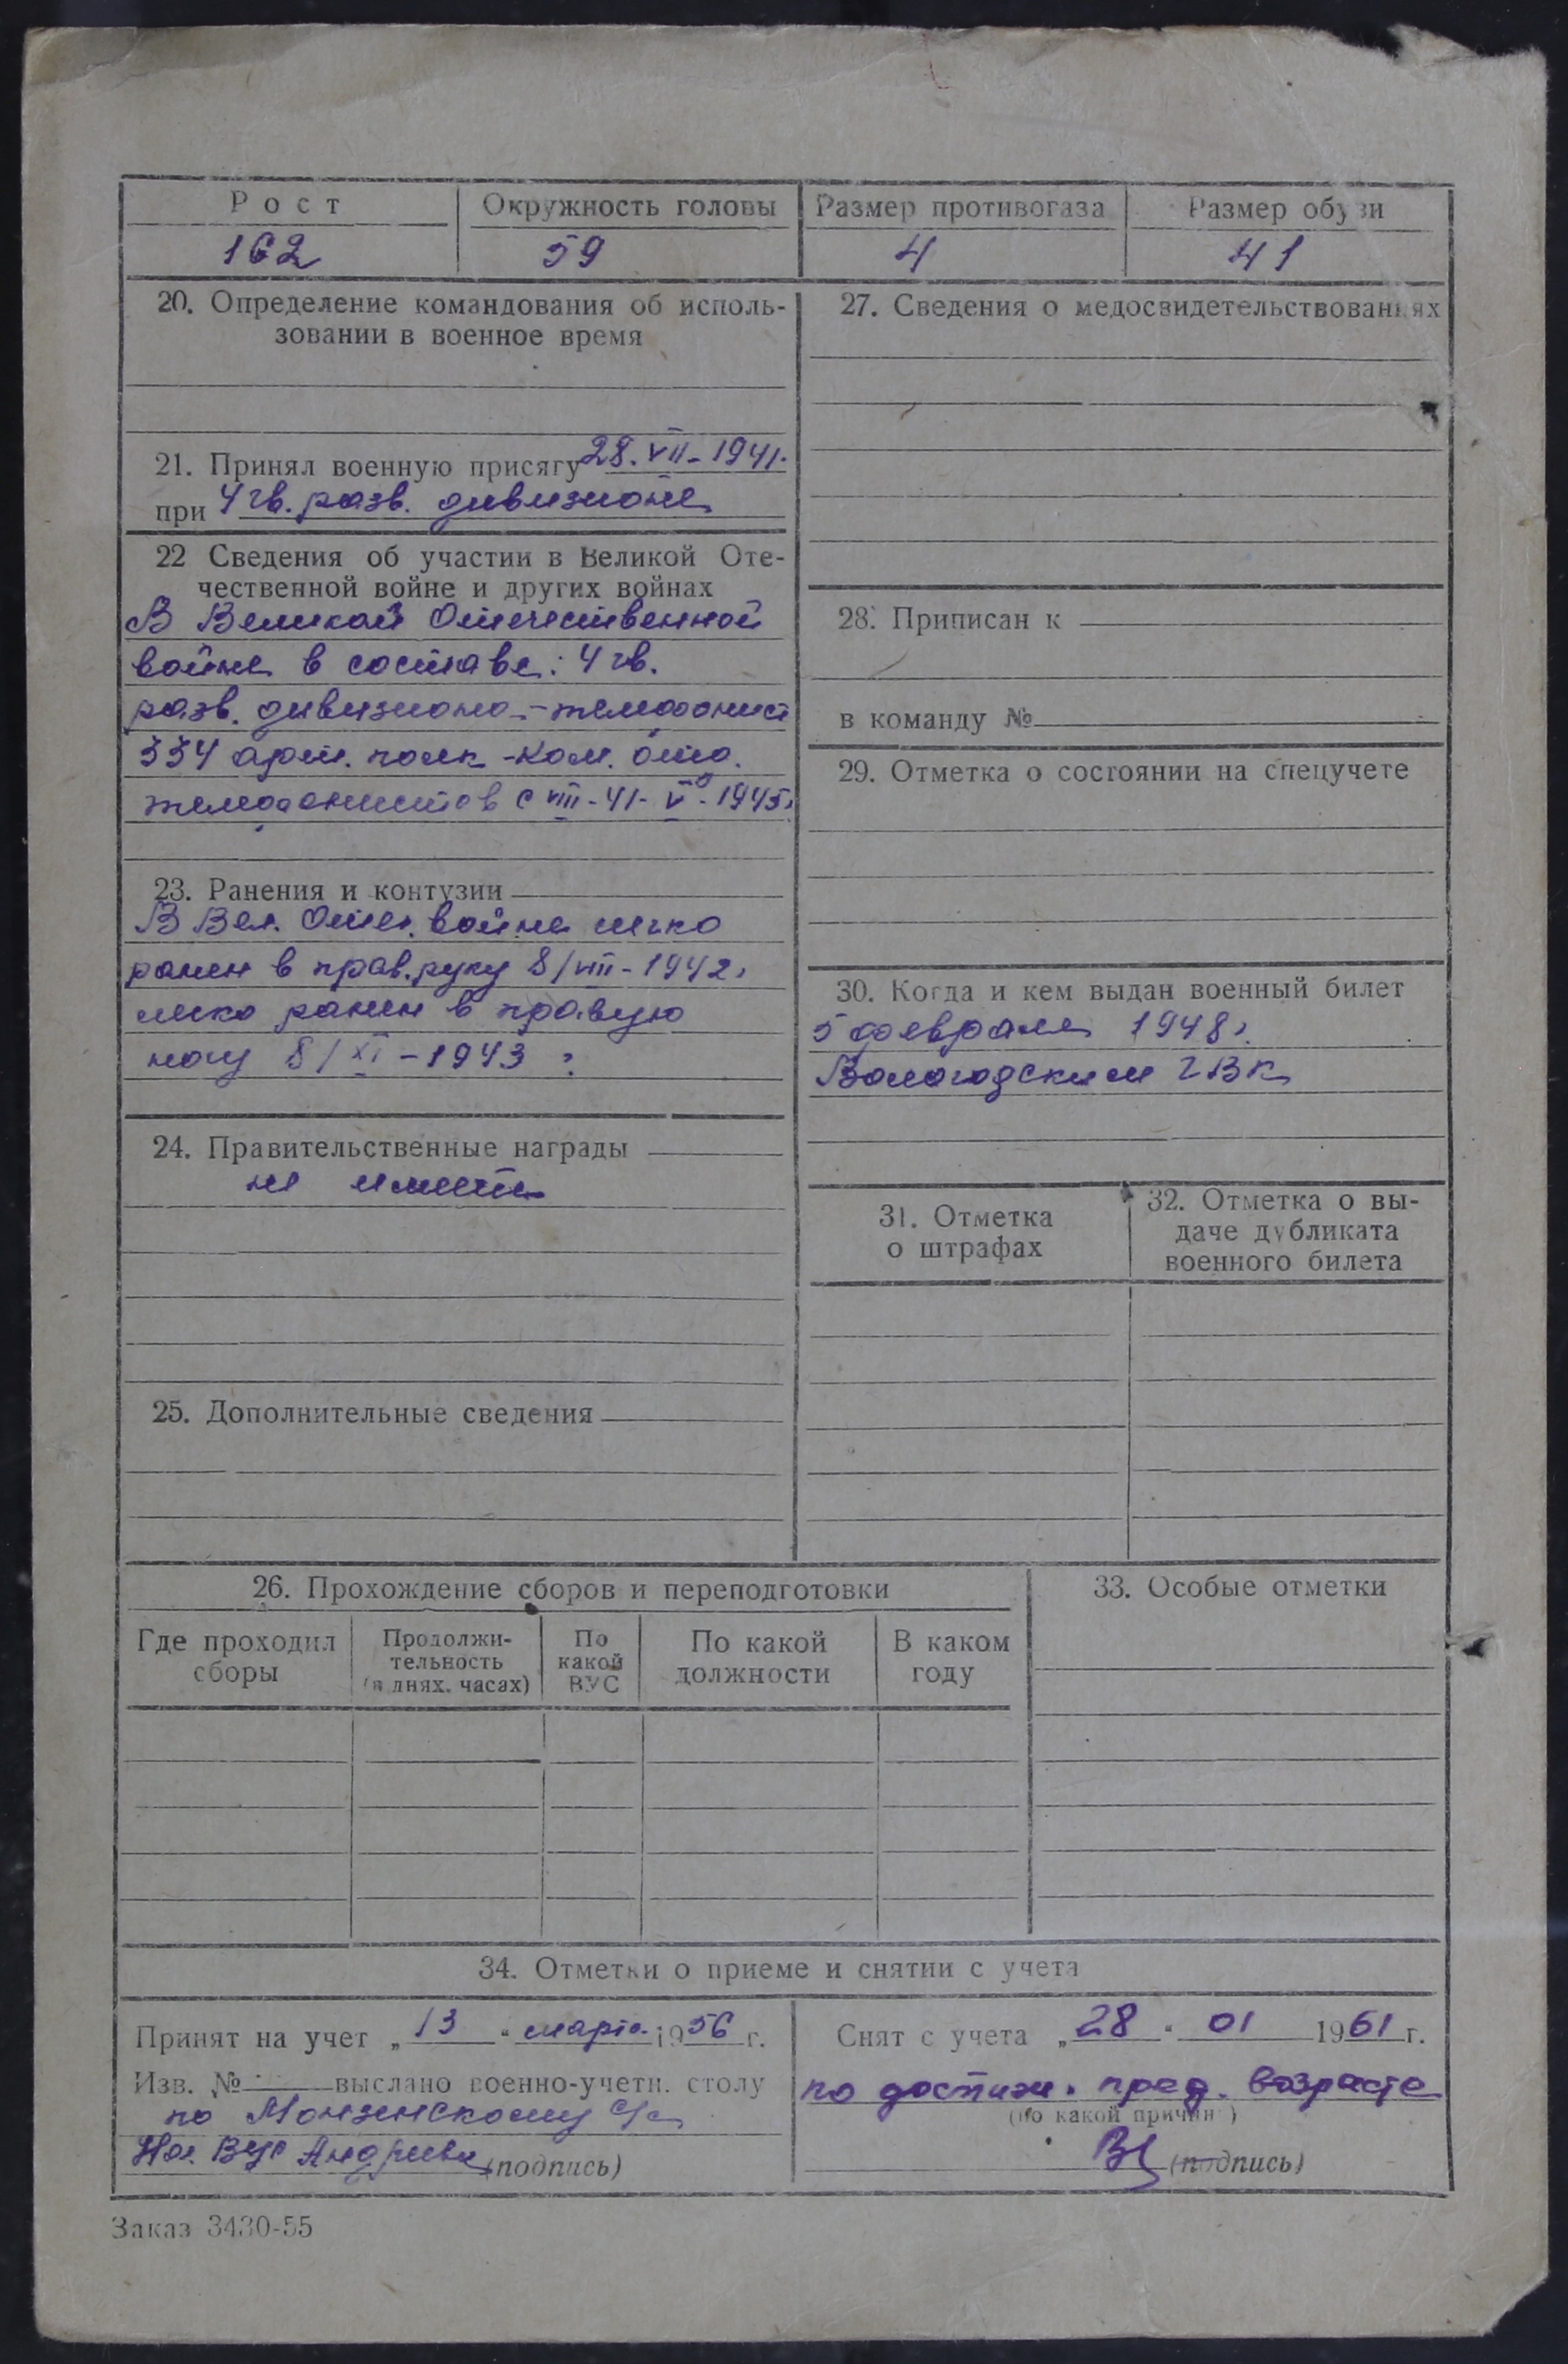 Рост
Окружность головы
Размер противогаза
Размер обуви
162
59
4
41
20. Определение командования об исполь-
зовании в военное время
21. Принял военную присягу 28. VII - 1941.
при 4 гв. разв. дивизионе
22 Сведения об участии в Великой Оте-
чественной войне и других войнах
В Великой Отечественной
войне в составе: 4 гв.
разв. дивизиона - телефонист
334 арт. полк - ком. отд.
телефонистов с VIII - 41 - V - 1945г
23. Ранения и контузии
В Вел. Отеч. войне легко
ранен в прав. руку 8/VIII - 1942г
легко ранен в правую
ногу 8/XI - 1943 г
24. Правительственные награды
не имеет
25. Дополнительные сведения
27. Сведения о медосвидетельствованиях
28. Приписан к
в команду №
29. Отметка о состоянии на спецучете
30. Когда и кем выдан военный билет
5 февраля 1948г.
Вологодским ГВК
31. Отметка
о штрафах
32. Отметка о вы-
даче дубликата
военного билета
26. Прохождение сборов и переподготовки
Где проходил
сборы
Продолжи-
тельность
(в днях, часах)
По
какой
ВУС
По какой
должности
В каком
году
33. Особые отметки
34. Отметки о приеме и снятии с учета
Принят на учет „ 13 " марта 1956 г.
Изв. № выслано военно-учетн. столу
по Монзенскому с/с
Нач. ВУС Андреева (подпись)
Снят с учета „ 28 " 01 1961 г.
по достиж. пред. возраста
(по какой причине)
(подпись)
Заказ 3430-55